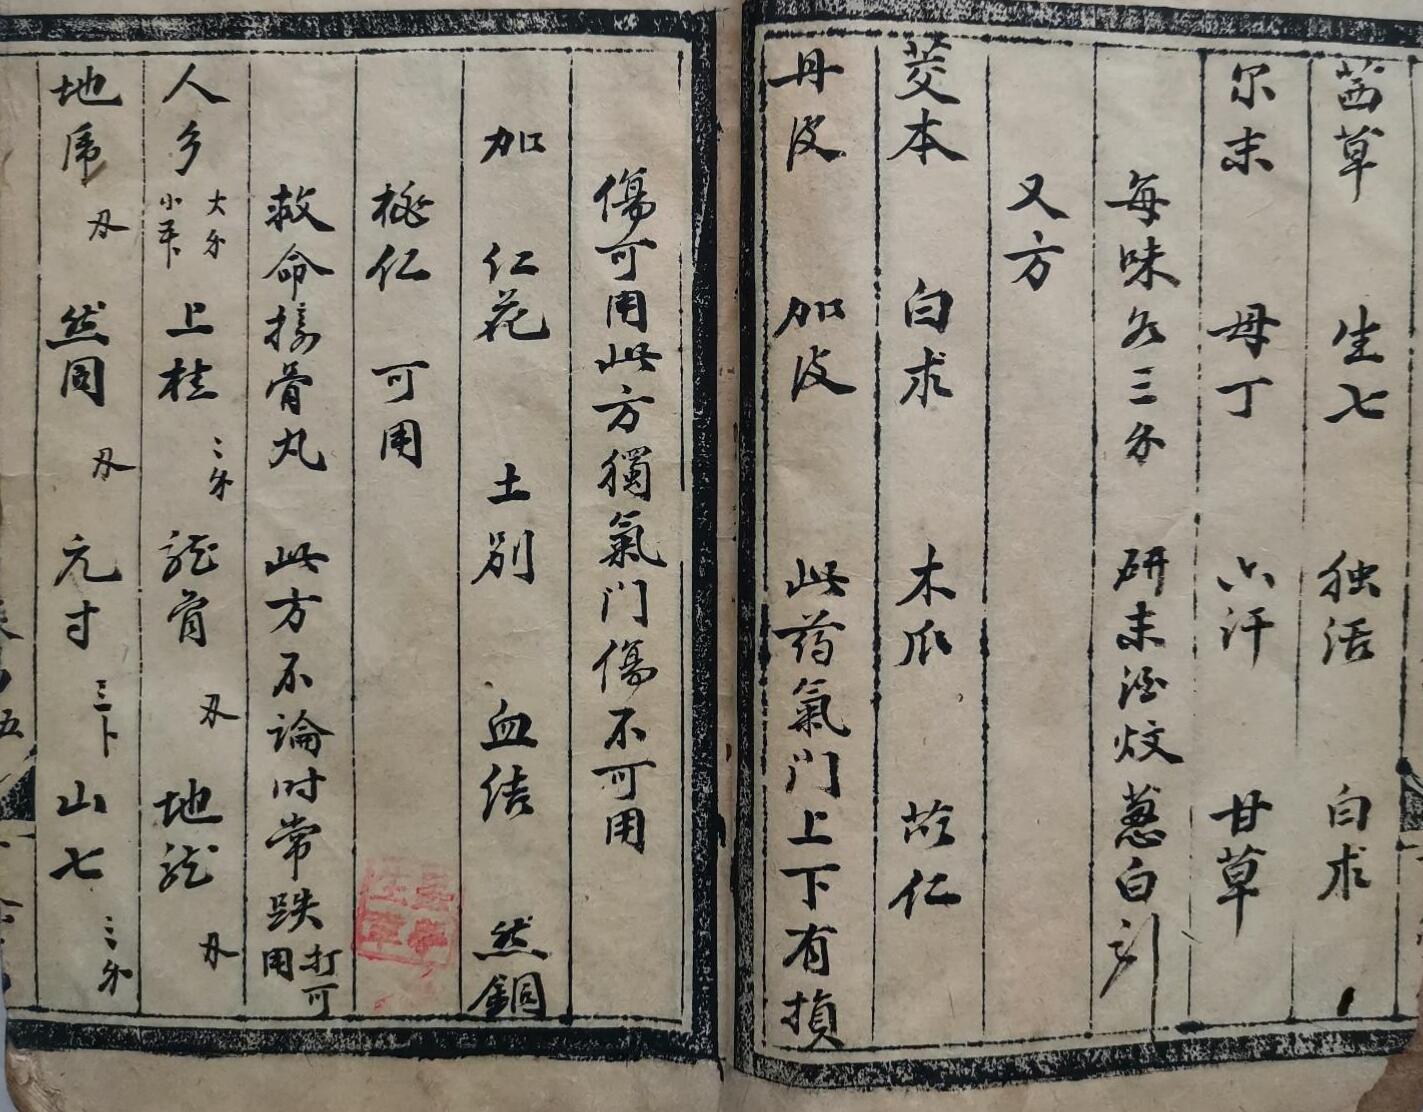 茜草 生七 独活 白求
尔末 母丁 六汗 甘草
每味各三分 研末酒炆葱白引
又方
茭本 白求 木瓜 苡仁
丹皮 加皮 此药氣门上下有損
傷可用此方獨氣门傷不可用
加 仁花 土别 血结 然銅
桃仁 可用
救命接骨丸 此方不論时常跌打可用
人乡 大分 小平卜 上桂 二分 龍骨 刄 地龍 刄
地虎 刄 然同 刄 元寸 三卜 山七 二分